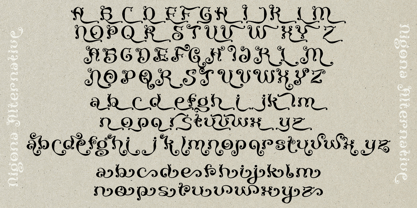 A B C D E F F G H I J K L M
N O P Q R S T U V W X Y Z
A B C D E F G H I J K L M
N O P Q R S T U V W X Y Z
a b c d e f g h i j k l m
n o p q r s t u v w x y z
a b c d e f g h i j k l m n o p q r s t u v w x y z
a b c d e f g h i j k l m
n o p q r s t u v w x y z
Ngona Alternative
Ngona Alternative